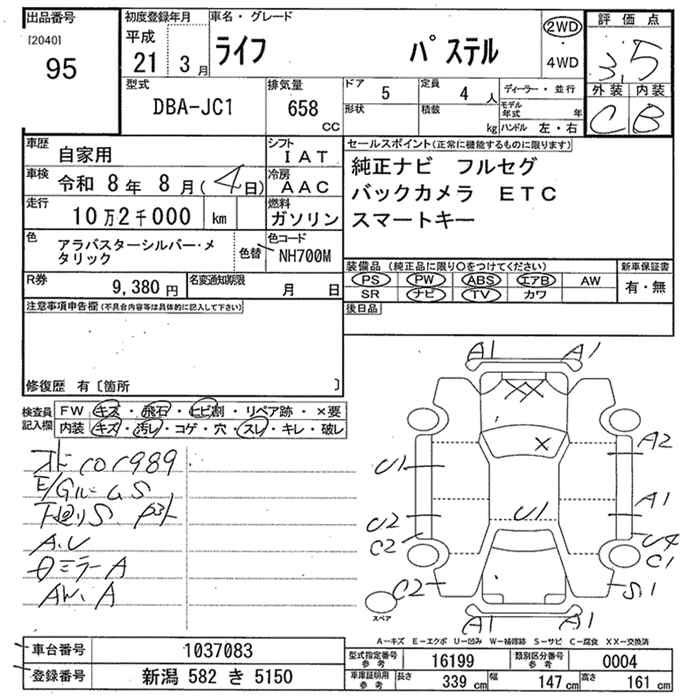 出品番号
[2040]
95
初度登録年月
平成
21 3月
車名・グレード
ライフ パステル
2WD
・
4WD
評価点
3,5
外装 内装
C B
型式
DBA-JC1
排気量
658
CC
ドア 5
定員 4 人
形状
積載 kg
ディーラー・並行
モデル年式 年
ハンドル 左・右
車歴 自家用
シフト IAT
車検 令和 8年 8月(4日)
冷房 AAC
走行 10万2千000 km
燃料 ガソリン
色 アラバスターシルバー・メタリック
色替
色コード NH700M
R券 9,380円
名変通知期限 月 日
セールスポイント(正常に機能するものに限ります)
純正ナビ フルセグ
バックカメラ ETC
スマートキー
装備品(純正品に限り○をつけてください)
PS PW ABS エアB AW
SR ナビ TV カワ
新車保証書
有・無
後日品
注意事項申告欄(不具合内容等は具体的に記入して下さい)
修復歴 有〔箇所 〕
検査員記入欄
FW キズ・飛石・ヒビ割・リペア跡・×要
内装 キズ・汚レ・コゲ・穴・スレ・キレ・破レ
A.U
ドミラーA
AW.A
A1 A1
A2
U1
A1
U2
U1
C2
U4
C1
C2
S1
A1 A1
スペア
A-キズ E-エクボ U-凹み W-補修跡 S-サビ C-腐食 XX-交換済
車台番号 1037083
登録番号 新潟 582 き 5150
型式指定番号 参考 16199
類別区分番号 参考 0004
車庫証明用 参考 長さ 339 cm 幅 147 cm 高さ 161 cm